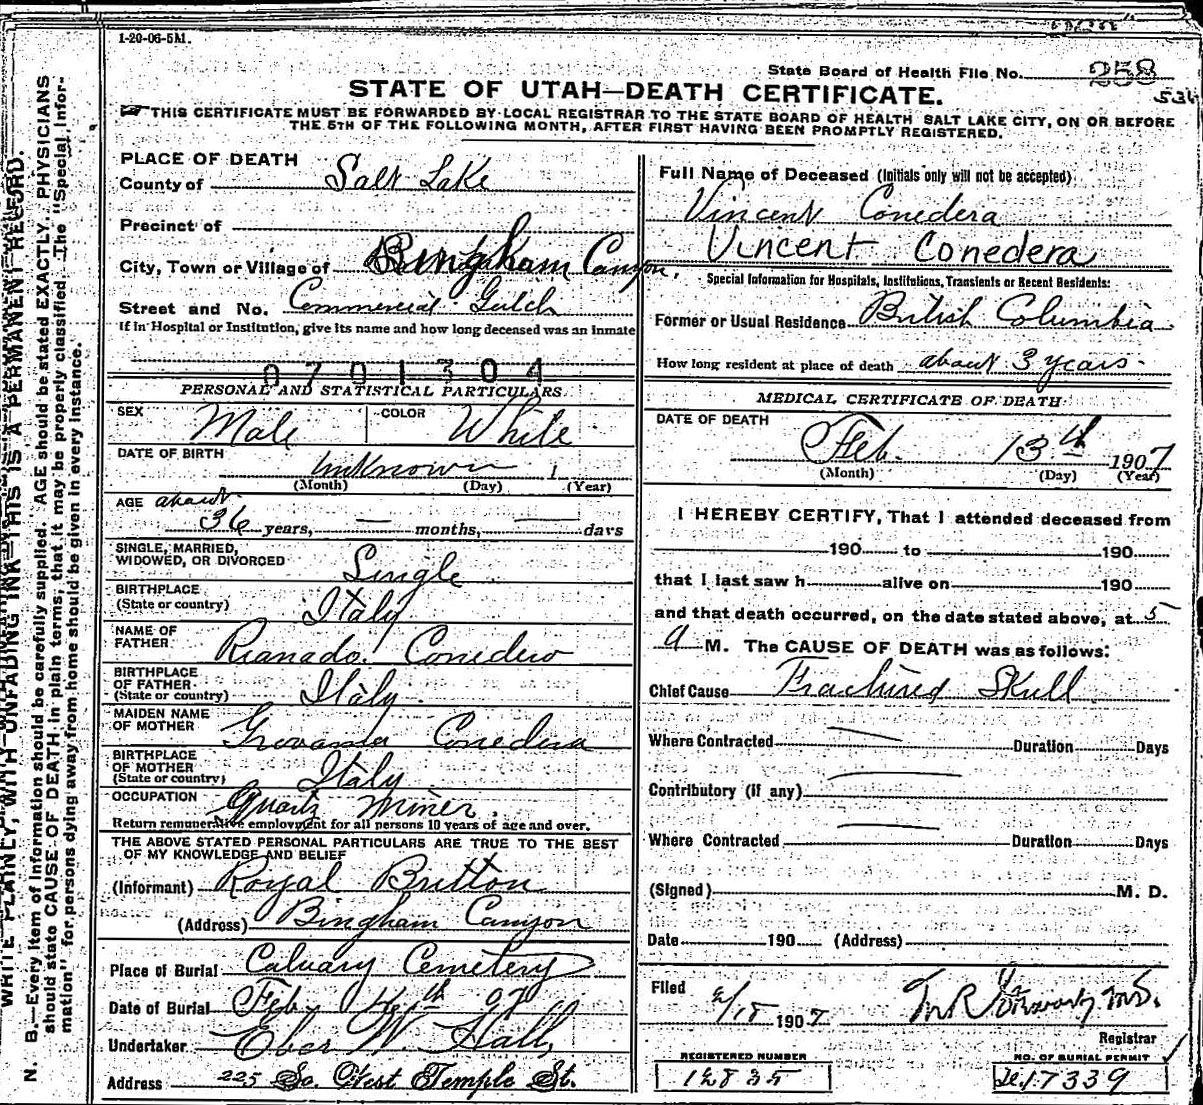 1-20-06-5M.
State Board of Health File No. 258
STATE OF UTAH—DEATH CERTIFICATE.
THIS CERTIFICATE MUST BE FORWARDED BY LOCAL REGISTRAR TO THE STATE BOARD OF HEALTH SALT LAKE CITY, ON OR BEFORE
THE 5TH OF THE FOLLOWING MONTH, AFTER FIRST HAVING BEEN PROMPTLY REGISTERED.
WRITE PLAINLY, WITH UNFADING INK—THIS IS A PERMANENT RECORD.
N. B.—Every item of Information should be carefully supplied. AGE should be stated EXACTLY. PHYSICIANS
should state CAUSE OF DEATH in plain terms, that it may be properly classified. The "Special Infor-
mation" for persons dying away from home should be given in every instance.
PLACE OF DEATH
County of Salt Lake
Precinct of
City, Town or Village of Bingham Canyon,
Street and No. Commercial Gulch
If in Hospital or Institution, give its name and how long deceased was an inmate
0701304
PERSONAL AND STATISTICAL PARTICULARS
SEX Male COLOR White
DATE OF BIRTH Unknown 1
(Month) (Day) (Year)
AGE about
36 years, — months, — days
SINGLE, MARRIED,
WIDOWED, OR DIVORCED Single
BIRTHPLACE
(State or country) Italy
NAME OF
FATHER Rianado Conedero
BIRTHPLACE
OF FATHER
(State or country) Italy
MAIDEN NAME
OF MOTHER Conedera
BIRTHPLACE
OF MOTHER
(State or country) Italy
OCCUPATION Quartz Miner.
Return remunerative employment for all persons 10 years of age and over.
THE ABOVE STATED PERSONAL PARTICULARS ARE TRUE TO THE BEST
OF MY KNOWLEDGE AND BELIEF
(Informant) Royal Britton
(Address) Bingham Canyon
Place of Burial Calvary Cemetery
Date of Burial Feb
Undertaker Eber W Hall,
Address 225 So. West Temple St.
Full Name of Deceased (Initials only will not be accepted)
Vincent Conedera
Vincent Conedera
Special Information for Hospitals, Institutions, Transients or Recent Residents:
Former or Usual Residence British Columbia.
How long resident at place of death about 3 years.
MEDICAL CERTIFICATE OF DEATH
DATE OF DEATH
Feb. 13th 1907
(Month) (Day) (Year)
I HEREBY CERTIFY, That I attended deceased from
190 to 190
that I last saw h alive on 190
and that death occurred, on the date stated above, at 5
a M. The CAUSE OF DEATH was as follows:
Chief Cause Fractured Skull
Where Contracted — Duration Days
Contributory (if any) —
Where Contracted — Duration Days
(Signed) M. D.
Date 190 (Address)
Filed
2/15 1907 M.D.
Registrar
REGISTERED NUMBER
12835
NO. OF BURIAL PERMIT
17339